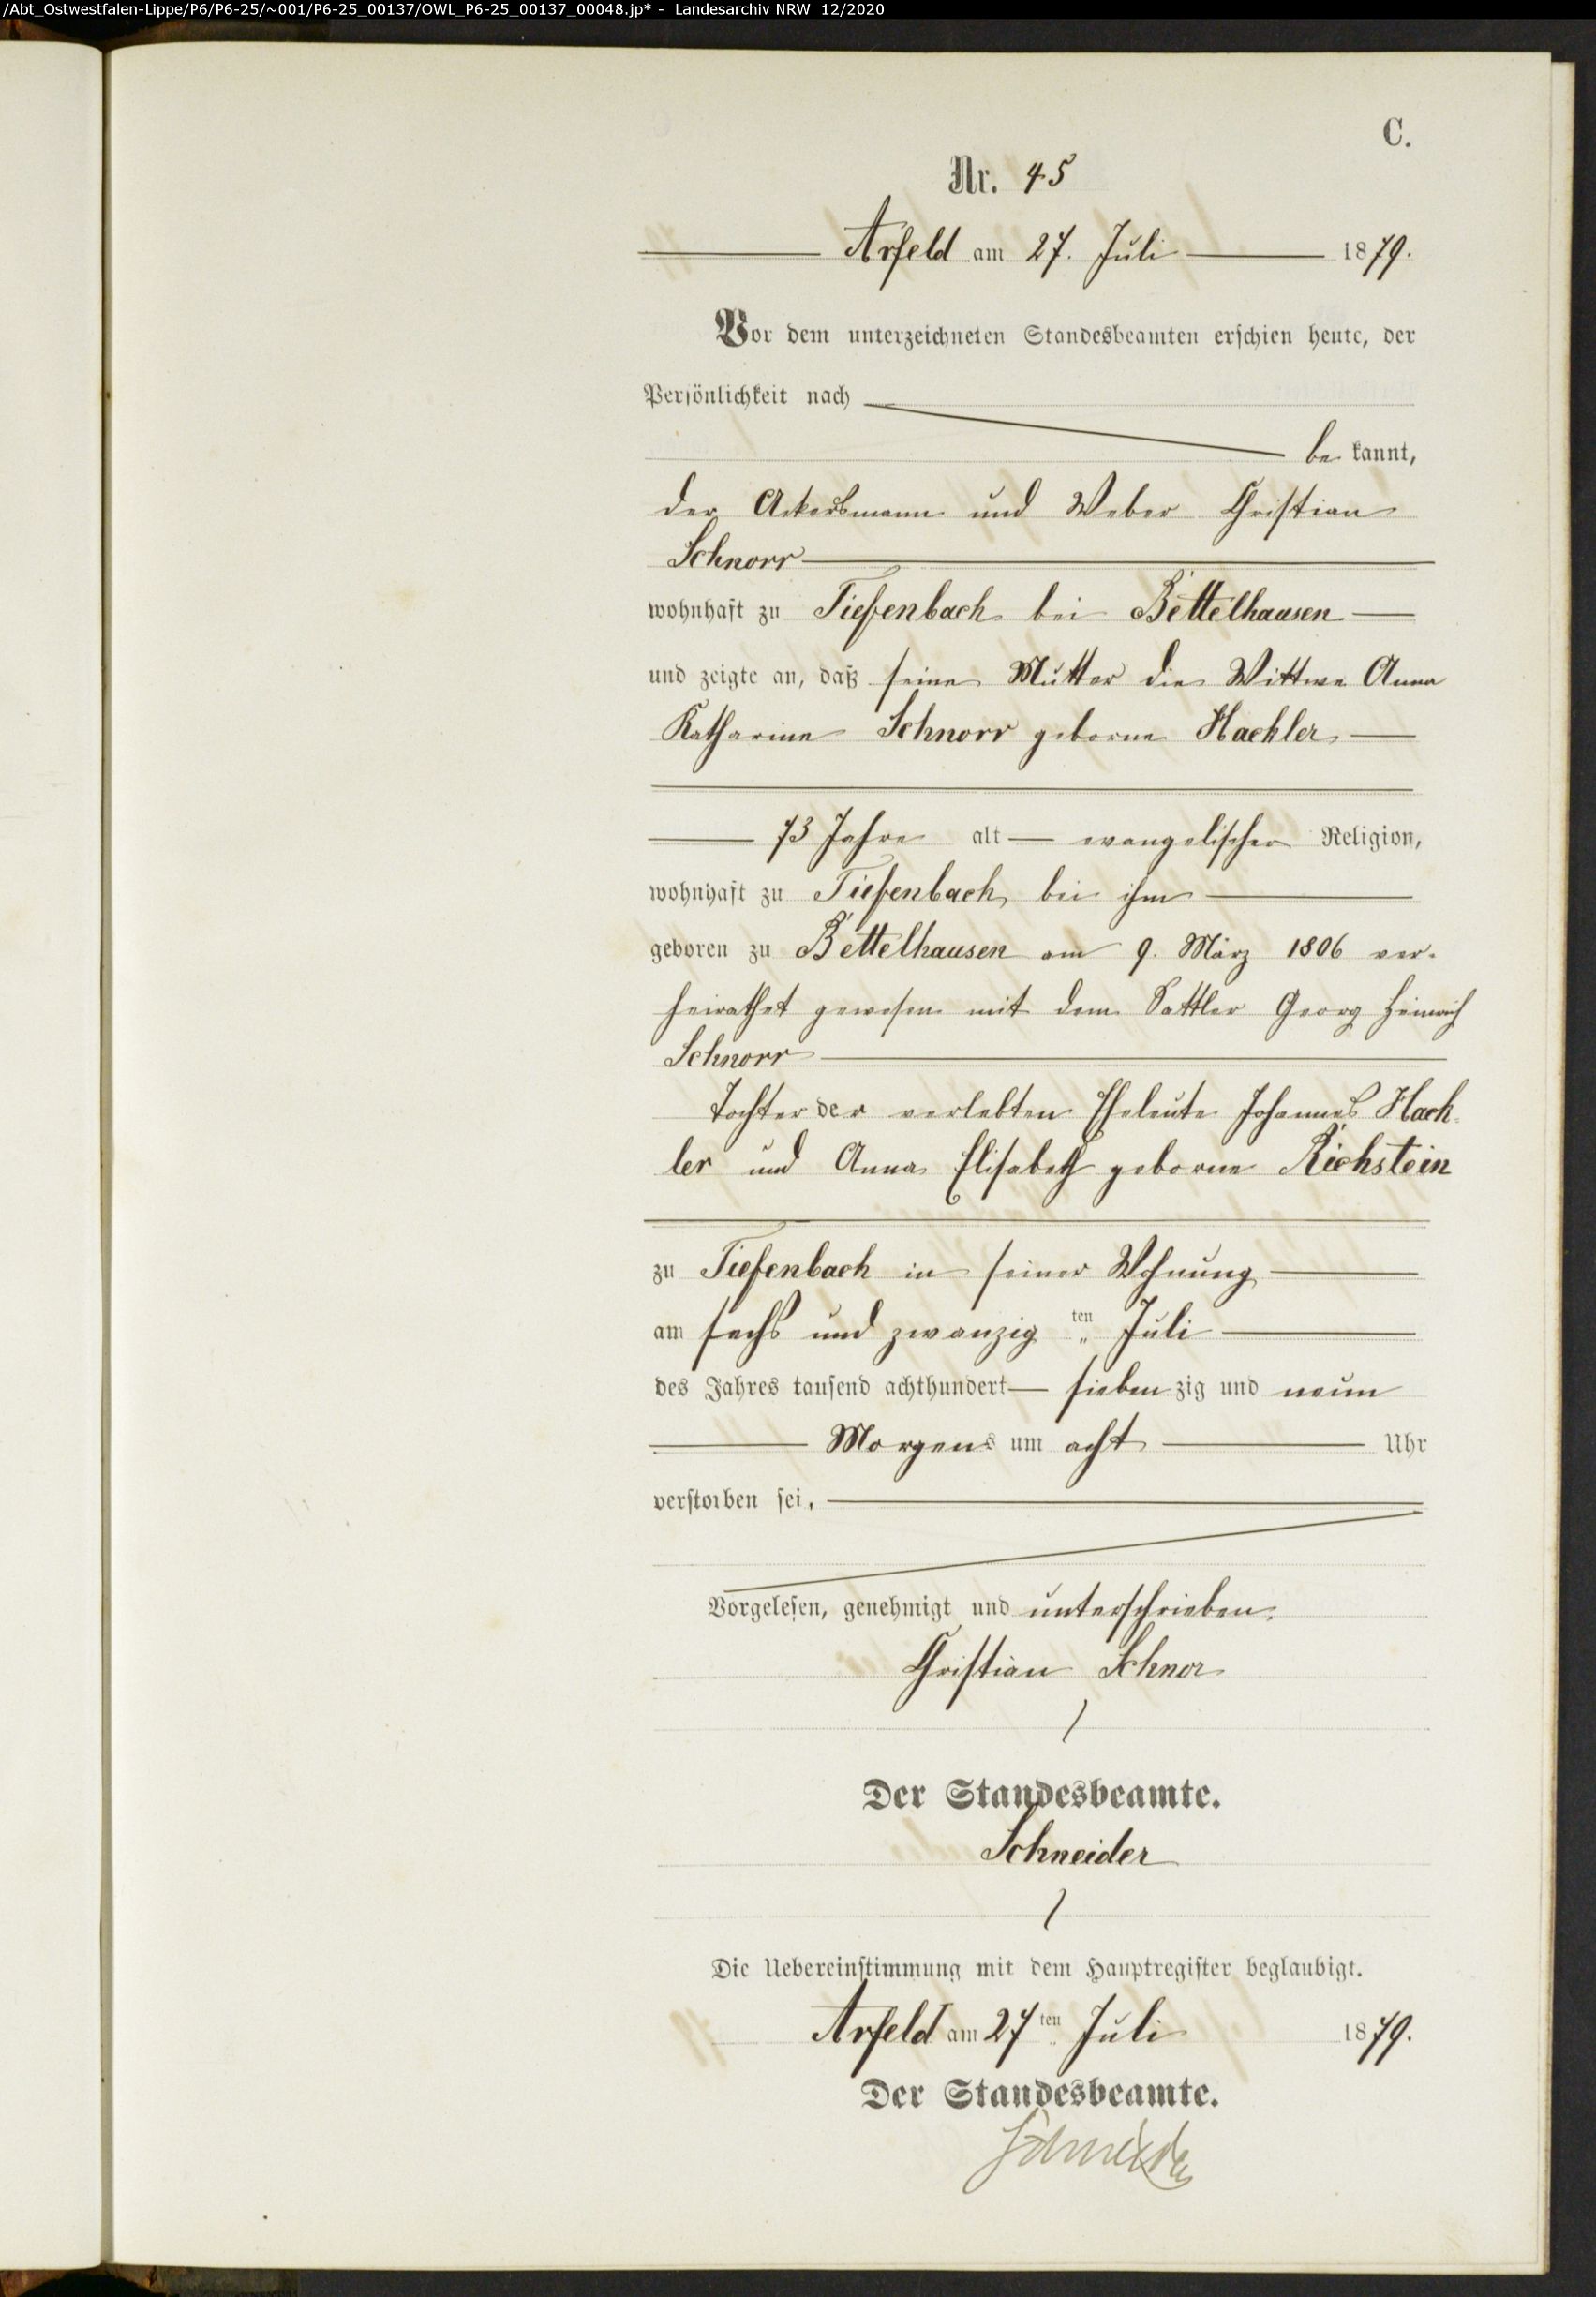 /Abt_Ostwestfalen-Lippe/P6/P6-25/~001/P6-25_00137/OWL_P6-25_00137_00048.jp* - Landesarchiv NRW 12/2020
C.
Nr. 45
Arfeld am 27. Juli 1879.
Vor dem unterzeichneten Standesbeamten erschien heute, der
Persönlichkeit nach
be kannt,
der Ackersmann und Weber Christian
Schnorr
wohnhaft zu Tiefenbach bei Bettelhausen
und zeigte an, daß seine Mutter die Wittwe Anna
Katharine Schnorr geborne Hackler
73 Jahre alt evangelischer Religion,
wohnhaft zu Tiefenbach bei ihm
geboren zu Bettelhausen am 9. März 1806 ver-
heirathet gewesen mit dem Sattler Georg Heinrich
Schnorr
Tochter der verlebten Eheleute Johannes Hack
ler und Anna Elisabeth geborne Richstein
zu Tiefenbach in seiner Wohnung
am sechs und zwanzig ten Juli
des Jahres tausend achthundert sieben zig und neun
Morgens um acht Uhr
verstorben sei.
Vorgelesen, genehmigt und unterschrieben.
Christian Schnor
Der Standesbeamte.
Schneider
Die Uebereinstimmung mit dem Hauptregister beglaubigt.
Arfeld am 27ten Juli 1879.
Der Standesbeamte.
Schneider